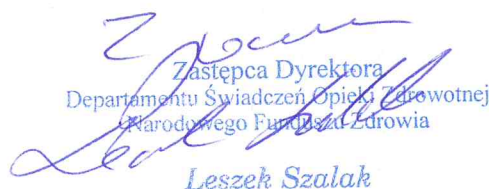 Zastępca Dyrektora
Departamentu Świadczeń Opieki Zdrowotnej
Narodowego Funduszu Zdrowia
Leszek Szalak